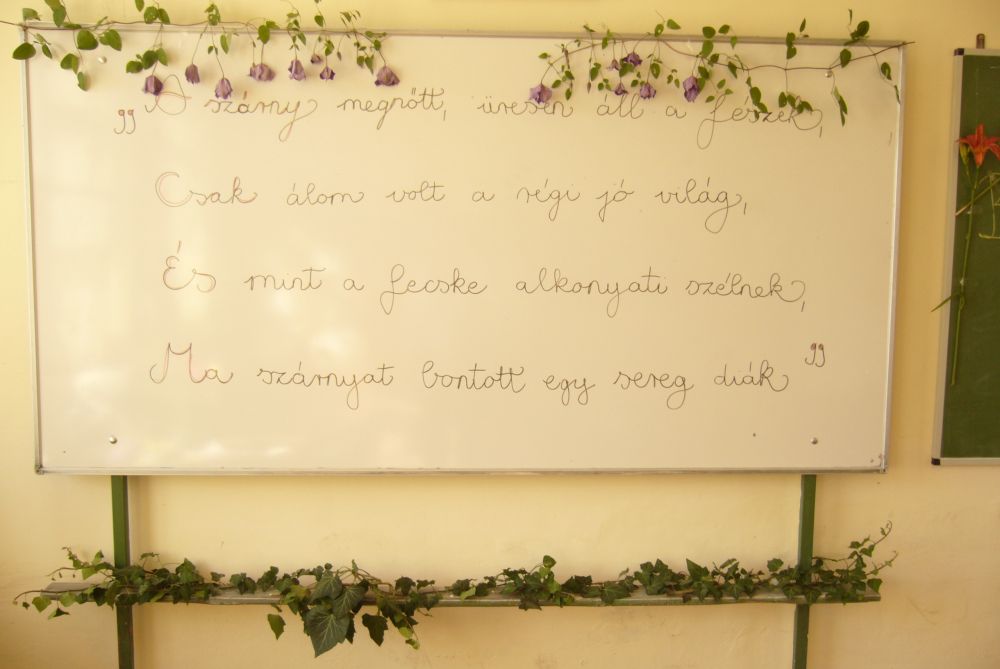 „A szárny megnőtt, üresen áll a feszek,
Csak álom volt a régi jó világ,
És mint a fecske alkonyati szélnek,
Ma szárnyat bontott egy sereg diák”